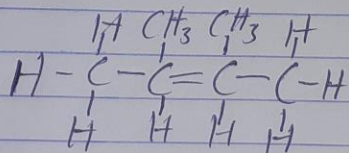 H CH3 CH3 H
H-C-C=C-C-H
H H H H